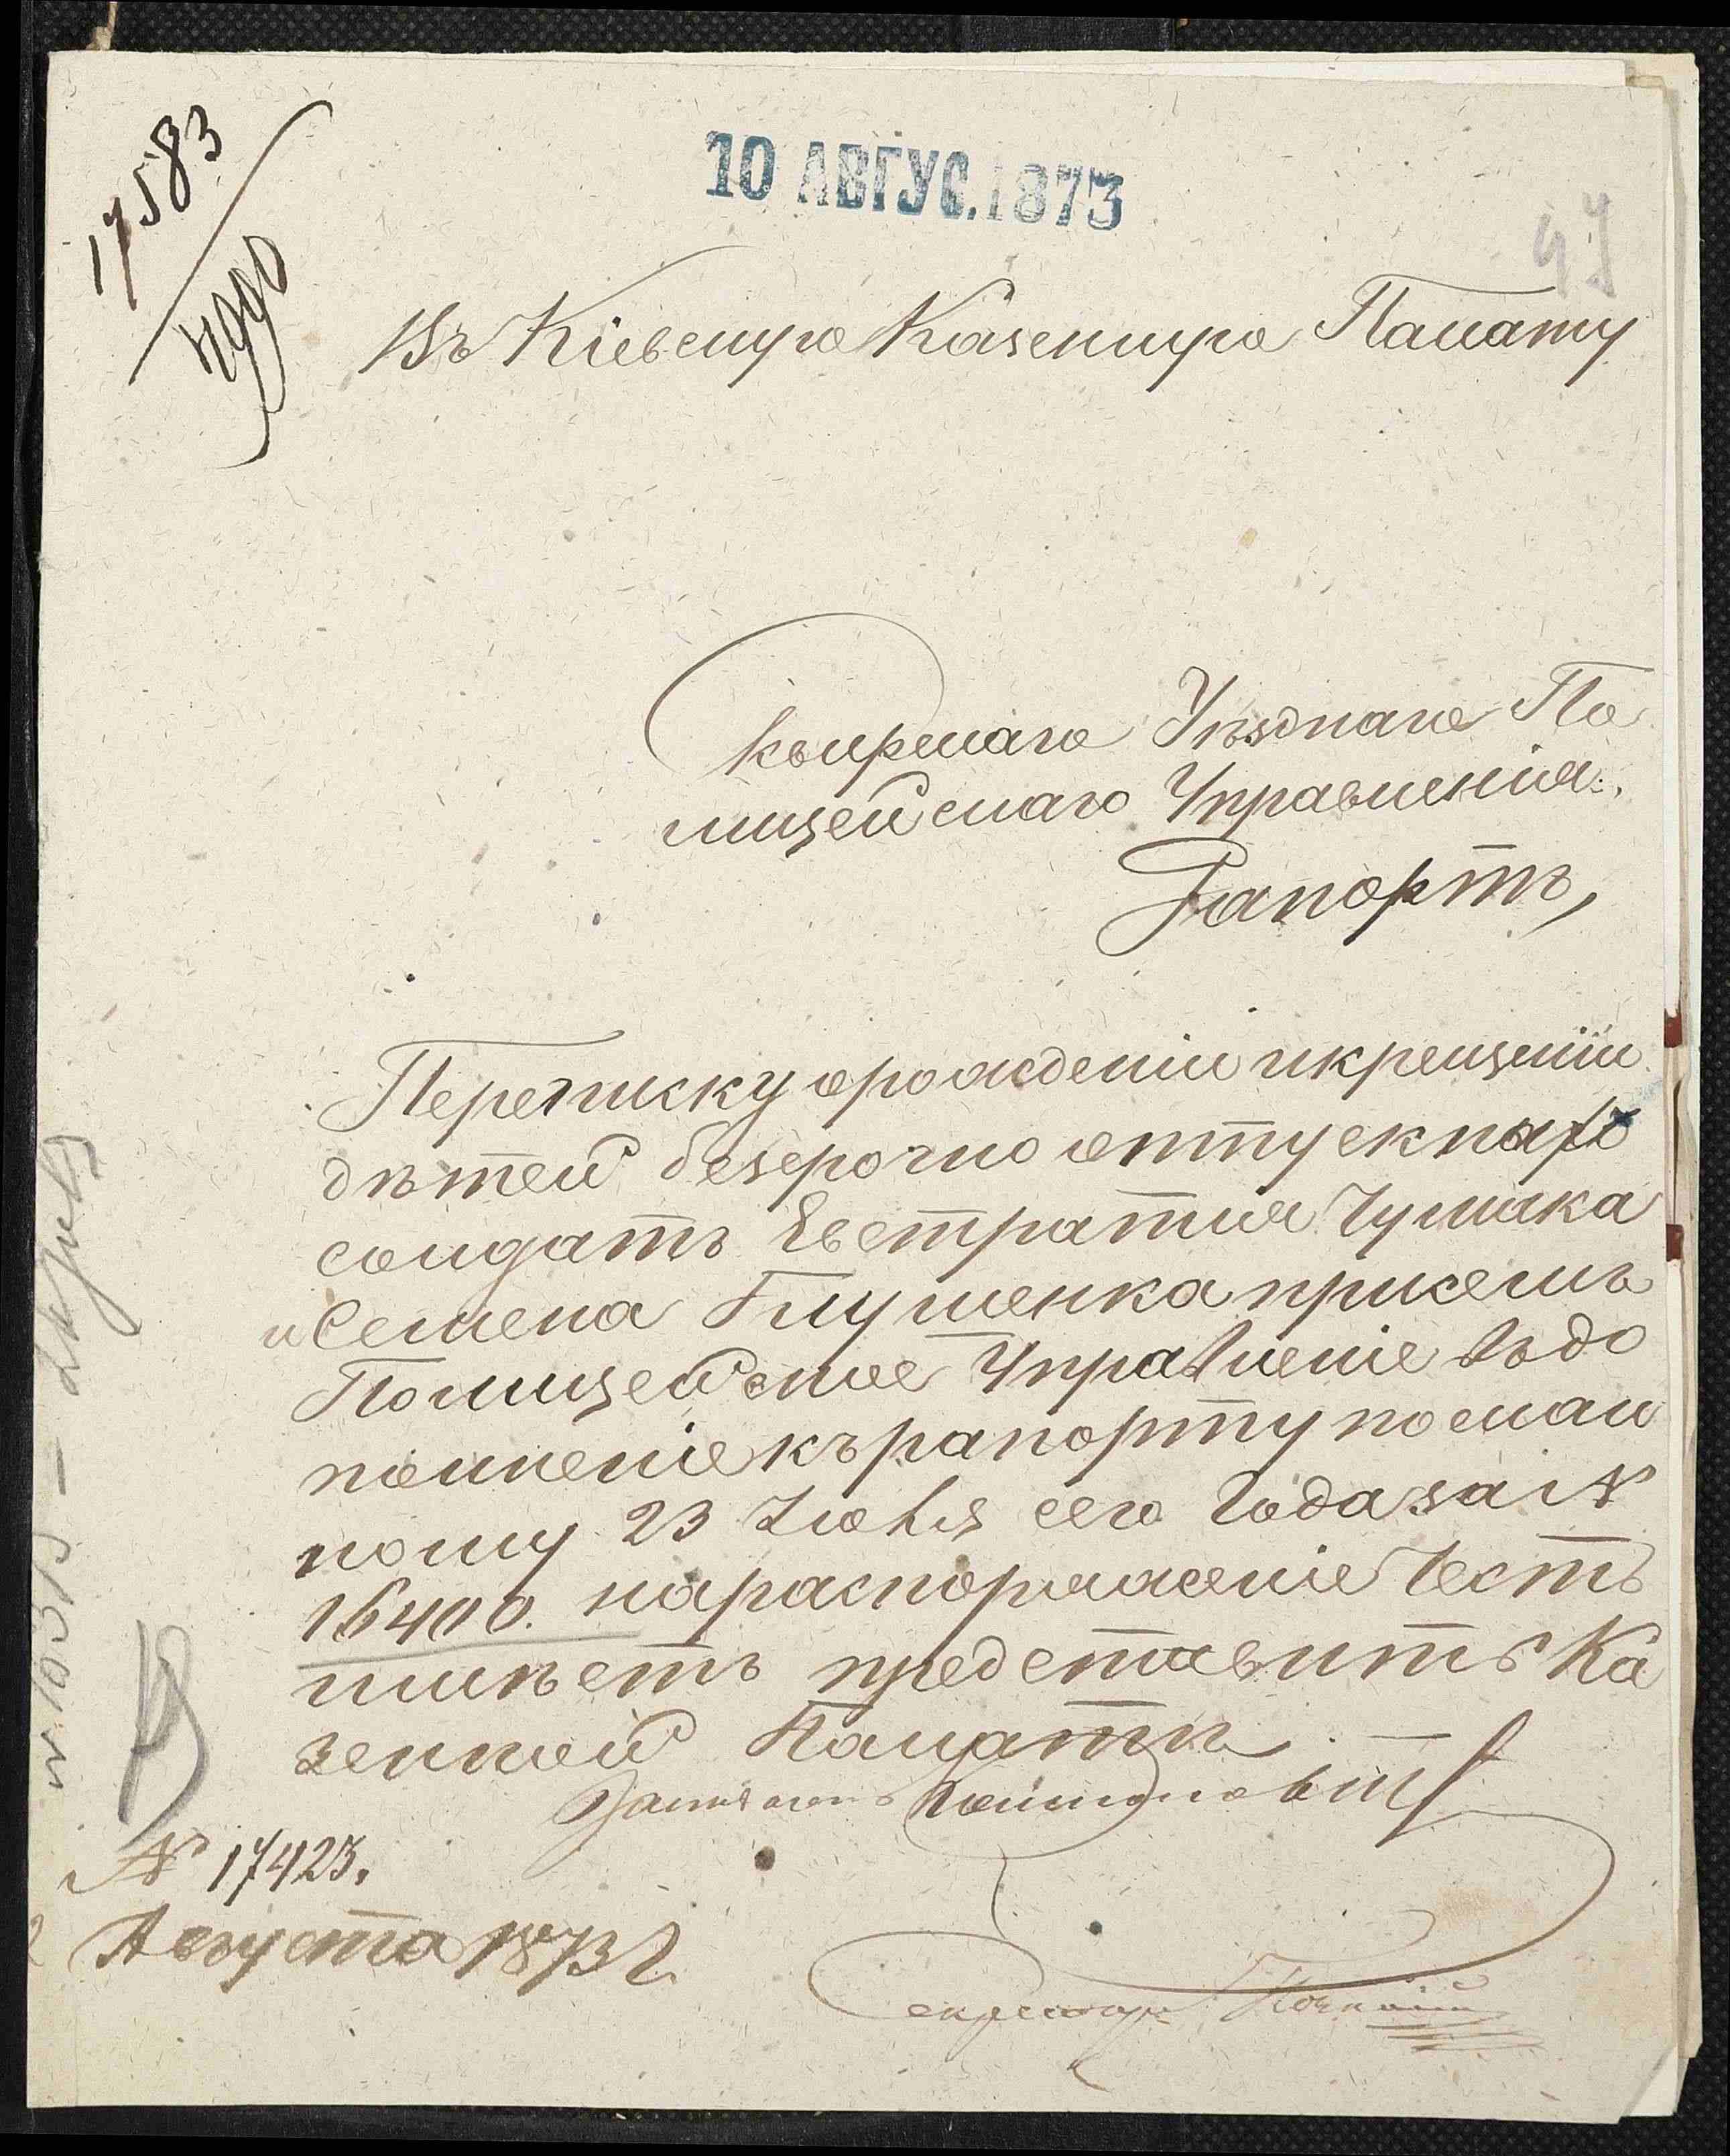 17583
10 АВГУС. 1873
47
Въ Кіевскую Казенную Палату
Сквирскаго Уѣзднаго По
лицейскаго Управленія.
Рапортъ,
Переписку о рожденіи и крещеніи
дѣтей безсрочно отпускныхъ
солдатъ Евстратія Чумака
и Семена Глущенка при семъ
Полицейское Управленіе въ до
полненіе къ рапорту послан
ному 23 Іюля сего Года за №
16400. на распоряженіе Честь
имѣетъ представить Ка
зенной Палатѣ.
№ 17423.
Августа 1873 г.
Секретарь